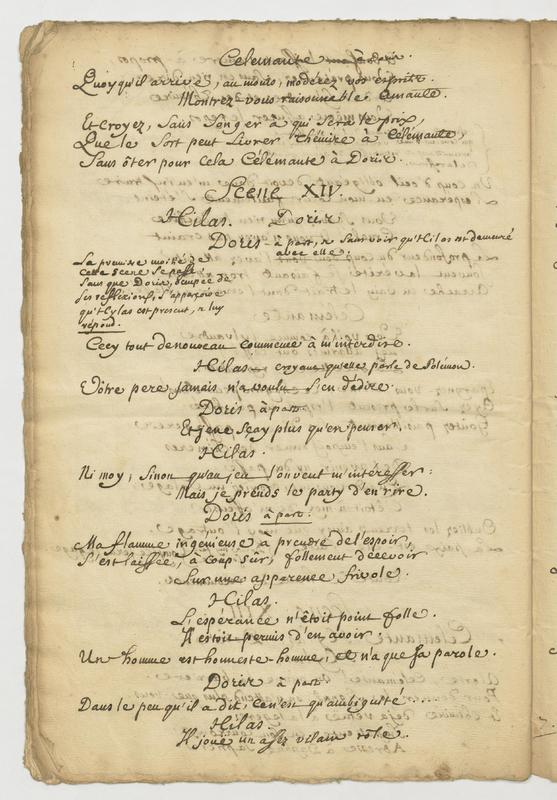 Celemante
Quoy qu'il arrive, au moins, moderez vos esprits.
Montrez vous raisonnable Amante.
Et croyez, sans songer à qui sera le prix,
Que le sort peut livrer Thémire à Célémante,
Sans ôter pour cela Célémante à Doris.
Scene XIV.
Hilas. Doris
Doris à part, & sans voir qu'Hilas est demeuré
avec elle.
La premiere moitié de
cette scene se passe
sans que Doris, occupée de
ses reflexions, s'apperçoive
qu'Hylas est present, & luy
répond.
Cecy tout de nouveau commence à m'interdire.
Hilas croyant qu'elle parle de Polémon.
Vôtre pere jamais n'a voulu s'en dédire.
Doris à part
Et je ne sçay plus qu'en penser.
Hilas.
Ni moy, sinon qu'au jeu l'on veut m'intéresser:
Mais je prends le party d'en rire.
Doris à part.
Ma flamme ingénieuse à prendre de l'espoir,
S'est laissée, à coup sûr, follement décevoir
Sur une apparence frivole.
Hilas.
L'espérance n'étoit point folle.
Il estoit permis d'en avoir.
Un homme est honneste homme, et n'a que sa parole.
Doris à part
Dans le peu qu'il a dit, ce n'est qu'ambiguité.....
Hilas.
Il joue un assez vilain role.